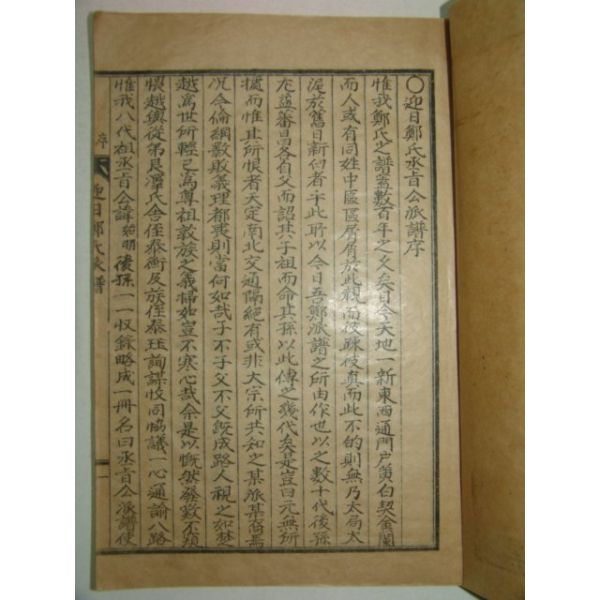 〇迎日鄭氏丞旨公派譜序
惟我鄭氏之譜蓋數百年之久矣目今天地一新東西通門户黃白契金蘭
而人或有同姓中區區屑屑於此親而彼踈彼真而此不的則無乃太局太
泥於舊日新向者乎此所以今日吾鄭派譜之所由作也以之數十代後孫
尤益蕃昌各自父而詔其子祖而命其孫以此傳之幾代矣是豈曰元無所
據而惟其所恨者大定南北交通隔絕有或非大宗所共知之某派某裔焉
况今倫綱斁敗義理都喪則當何如哉子不子父不父旣成路人視之如楚
越寓世所輕己爲尊祖敦族之義掃如豈不寒心哉余是以慨然發歎不須
猥越與從弟良澤氏舍侄泰衡及族侄泰珏詢謀恔同恊議一心通諭八路
惟我八代祖丞旨公諱 始明 後孫一一収錄略成一冊名曰丞旨公派譜使
序
迎日鄭氏家譜
一